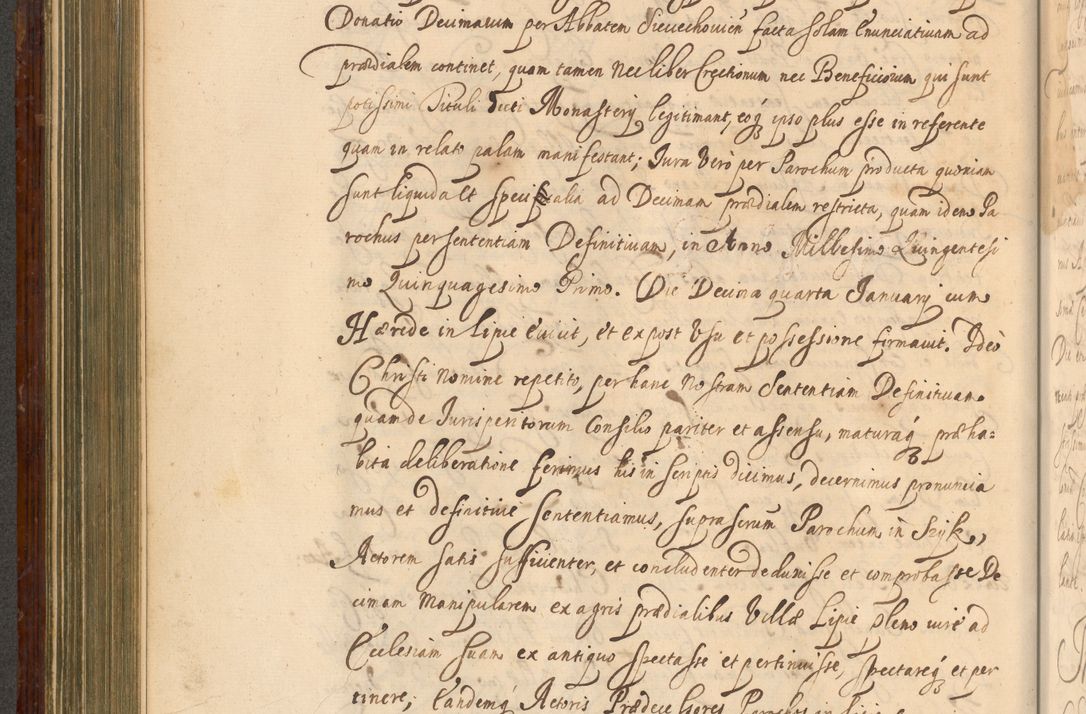 Donatio Decimarum per Abbatem Sieciechovien facta solam Enunciativam ad
prædialem continet, quam tamen nec liber Erectionum nec Beneficiorum qui sunt
potissimi Tituli dicti Monasterij legitimant, eoq ipso plus esse in referente
quam in relato palam manifestant; Jura Vero per Parochum producta quoniam
sunt liquida et specialia ad Decimam prædialem restricta, quam idem Pa
rochus per sententiam Definitivam, in Anno Millesimo Quingentesi
mo Quinquagesimo Primo. Die Decima quarta Januarij cum
Hærede in Lipie evicit, et ex post Usu et possessione firmavit. Ideo
Christi Nomine repetito, per hanc Nostram Sententiam Definitivam
quam de Jurisperitorum Consilio pariter et assensu, maturaq præha=
bita deliberatione ferimus his in scriptis dicimus, decernimus pronuncia
mus et definitive sententiamus, supra scrum Parochum in Szyk,
Actorem satis sufficienter, et concludenter deduxisse et comprobasse De
cimam Manipularem ex agris prædialibus Villæ Lipie pleno iure ad
Ecclesiam suam ex antiquo spectasse et pertinuisse, spectareq et per
tinere; Eandemq Actoris Prædecessores Parochos in